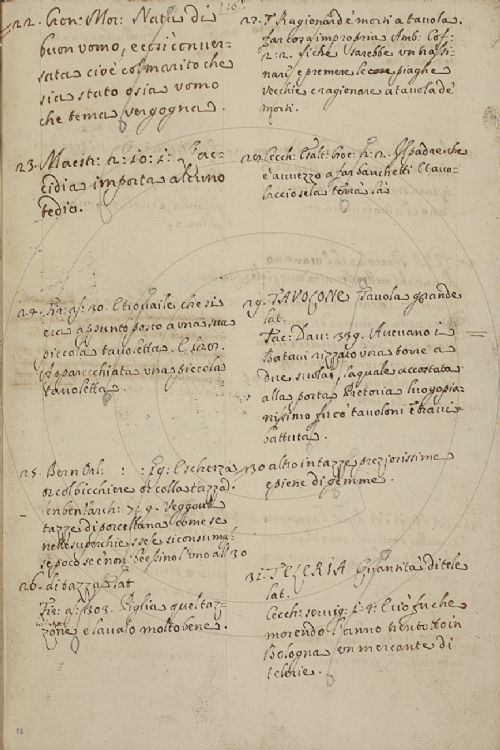 22. Gron: Mor: Nata di
buon uomo, e così conuer-
sata cioè col marito che
sia stato o sia uomo
che tema vergogna.
23. Maestr: 2: 10: 1: L'ac-
cidia importa alcuno
tedio.
24. Fir: as: 30. Il tiouaile che si
era appunto posto a una sua
piccola tauoletta. E 120.
Apparecchiata una piccola
tauoletta.
25. Bern Orl: : : 59: E scherza
or col bicchiere or colla tazza.
Inbentarch: 7: 9. Veggoui
tazze di porcellana come se
nelle superchie se le si consuma-
se poco se è non beessino l'uno all' 30
26. di tazza lat
Fir: as: 303. Piglia quel taz-
zone e laualo molto bene.
18
27. T Ragionar de morti a tauola.
far cosa impropria Amb: Cof:
2: 2. si che sarebbe un trassi-
nare e premere le piaghe
vecchie e ragionare a tauola de
morti.
28. Cecch: Esalt: Croc: 2: 2. Il padre che
è auuezzo a far banchetti E tauo-
laccio se la terrà là
29. TAVOLONE Tauola grande
lat.
Tac: Dau: 339. Aueuano i
Bataui rizzato una torre a
due suolai, la quale accostata
alla porta Pretoria luogo pia-
nissimo fu co' tauoloni e traui
battuta.
30 altro in tazze preziosissime
e piene di gemme.
31. TELERIA Quantità di tele
lat.
Cecch: seruig: 1: 4: E uò fu che
morendo l'anno trentotto in
Bologna un mercante di
telerie.